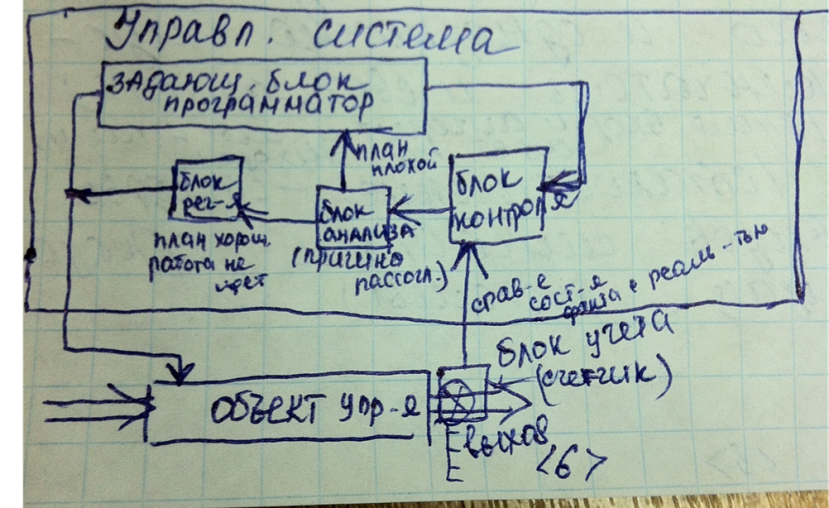 Управл. система
задающ. блок
программатор
план
плохой
блок
рег-я
блок
анализа
(причина
рассогл.)
блок
контроля
план хорош
работа не
идет
срав-е
сост-я
факта с реаль-тью
блок учета
(счетчик)
объект упр-я
выход
<6>